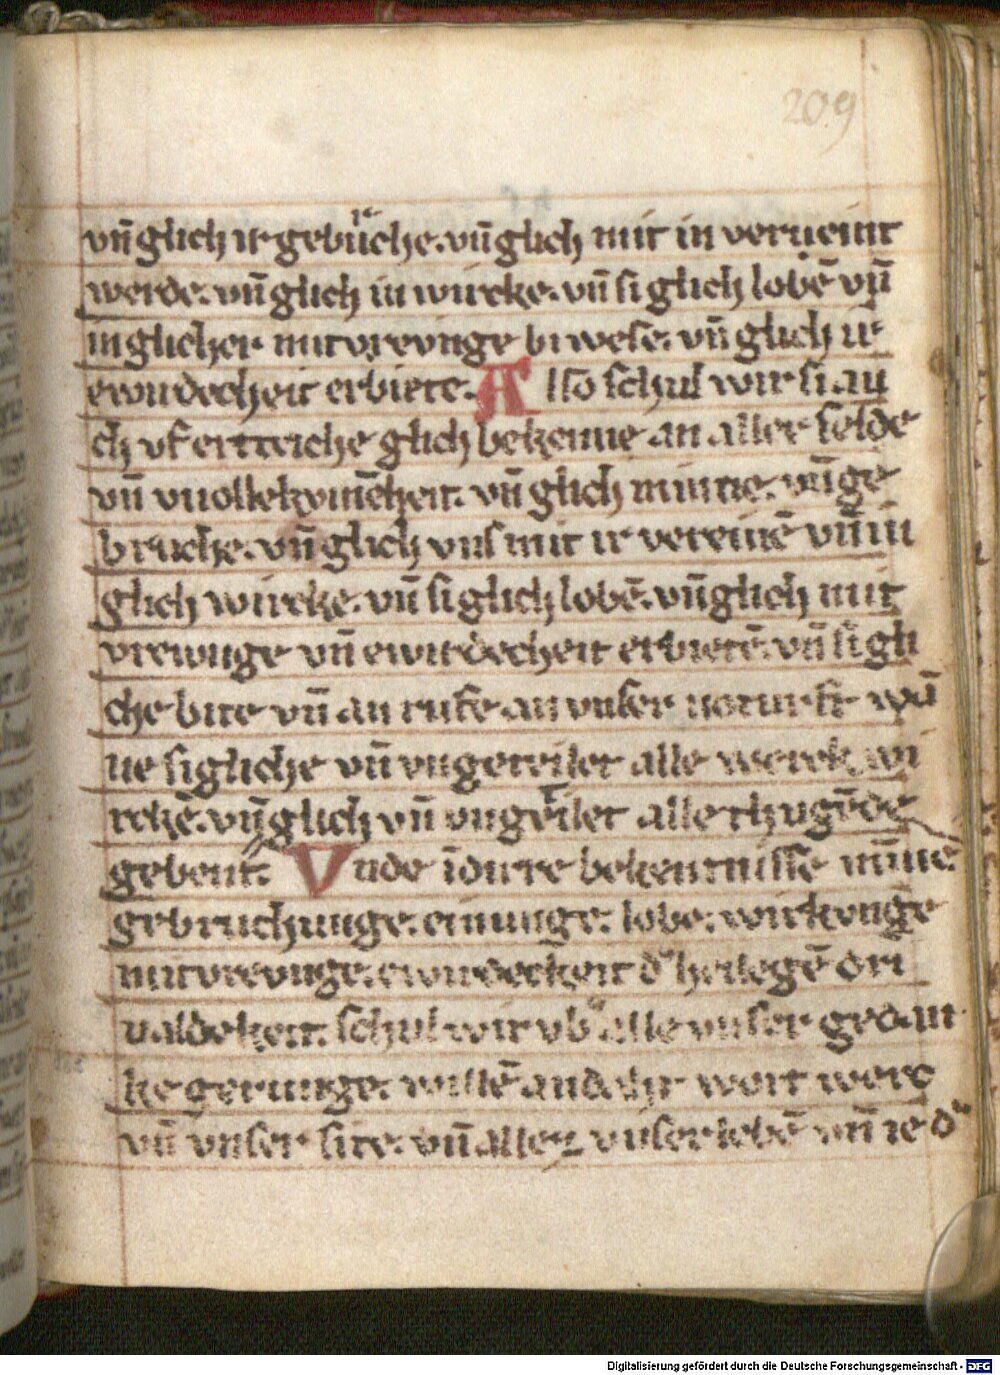 209
vn̄ glich ir gebruͤche. vn̄ glich mit in vereint
werde. vn̄ glich in wircke. vn̄ si glich lobē vn̄
in glicher mitvrevnge bi wese. vn̄ glich ir
erwirdecheit erbiete. Also schul wir si au
ch vf ertriche glich bekenne an aller selde
vn̄ vnollekvmēheit. vn̄ glich minne. vn̄ ge
bruche. vn̄ glich vns mit ir vereinē vn̄ in
glich wircke. vn̄ si glich lobē. vn̄ glich mit
vrewnge vn̄ ewirdecheit erbietē. vn̄ si gli
che bite vn̄ an rufe an vnser noturft wā
ne si gliche vn̄ vngeteilet alle werck wi
rckē. vn̄ glich vn̄ vngeteilet alle thvgēde
gebent. Vnde in dirre bekentnisse minne
gebruchunge. einunge. lobe. wirkvnge
mitvrevnge. ewirdeckeit d' heilegē dri
ualdekeit. schul wir vb' alle vnser gedan
ke gerunge. willē andaht wort werc
vn̄ vnser site. vn̄ allez vnser lebē vn̄ ie d'
Digitalisierung gefördert durch die Deutsche Forschungsgemeinschaft - DFG